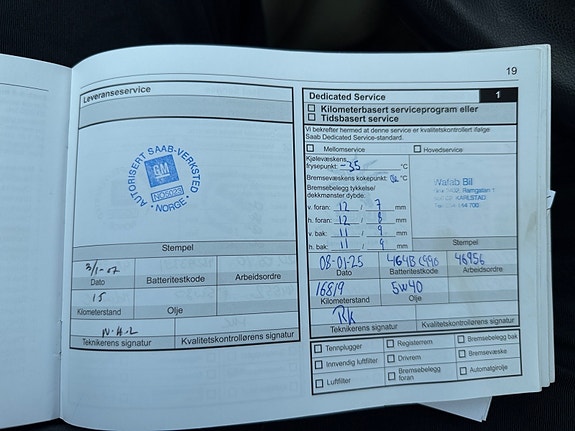 19
Leveranseservice
AUTORISERT SAAB-VERKSTED
GM
NO2023
NORGE
Stempel
3/1-07
Dato
Batteritestkode
Arbeidsordre
15
Kilometerstand
Olje
N.A.L
Teknikerens signatur
Kvalitetskontrollørens signatur
Dedicated Service 1
Kilometerbasert serviceprogram eller
Tidsbasert service
Vi bekrefter hermed at denne service er kvalitetskontrollert ifølge
Saab Dedicated Service-standard.
Mellomservice
Hovedservice
Kjølevæskens
frysepunkt: -35 °C
Bremsevæskens kokepunkt: °C
Bremsebelegg tykkelse/
dekkmønster dybde:
v. foran: 12 / 7 mm
h. foran: 12 / 8 mm
v. bak: 11 / 9 mm
h. bak: 11 / 9 mm
Wafab Bil
KARLSTAD
Stempel
08-01-25
Dato
464B C990
Batteritestkode
46956
Arbeidsordre
16819
Kilometerstand
5W40
Olje
RK
Teknikerens signatur
Kvalitetskontrollørens signatur
Tennplugger
Registerrem
Bremsebelegg bak
Innvendig luftfilter
Drivrem
Bremsevæske
Luftfilter
Bremsebelegg
foran
Automatgirolje